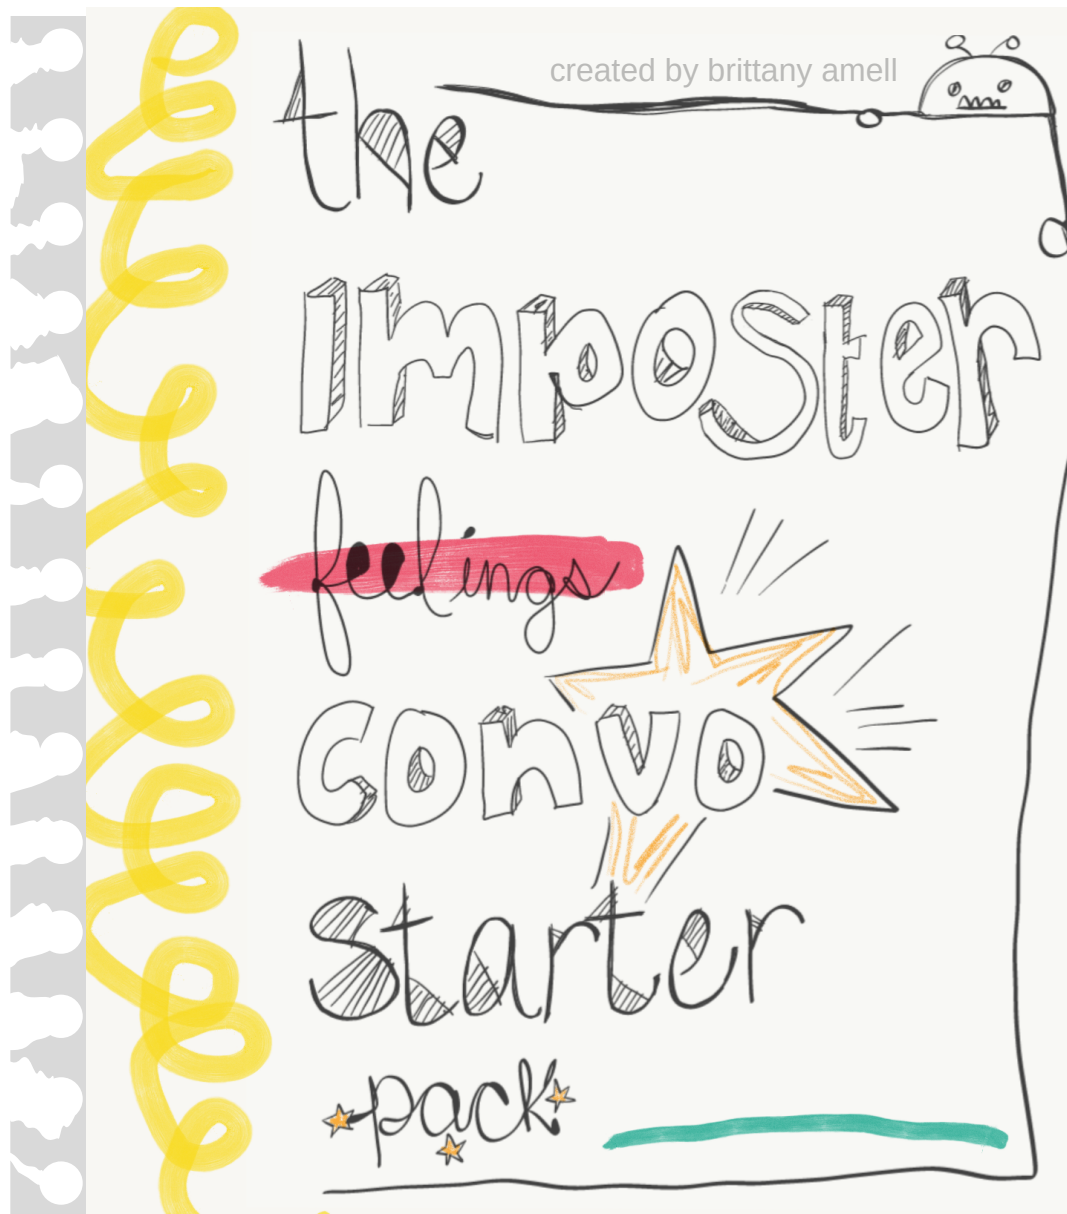 created by brittany amell
the
Imposter
feelings
convo
Starter
pack!